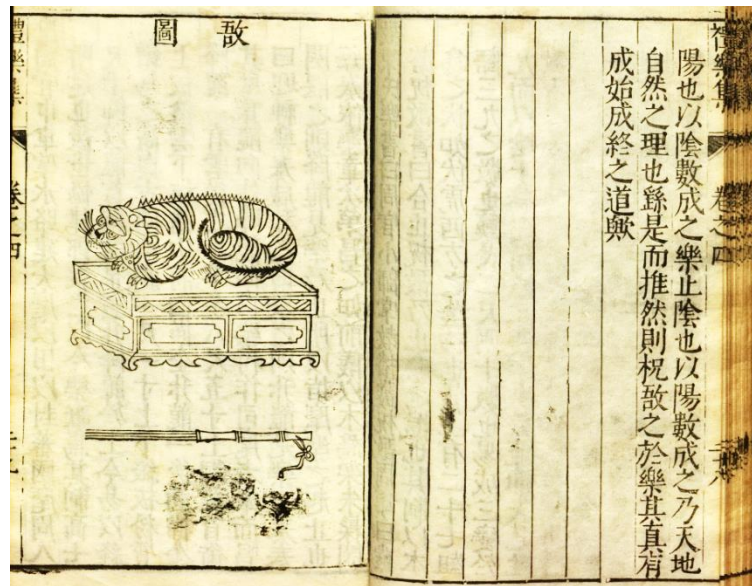 禮樂集
卷之四
陽也以陰數成之樂止陰也以陽數成之乃天地
自然之理也繇是而推然則柷敔之於樂其真有
成始成終之道歟
敔圖
禮樂集
卷之四